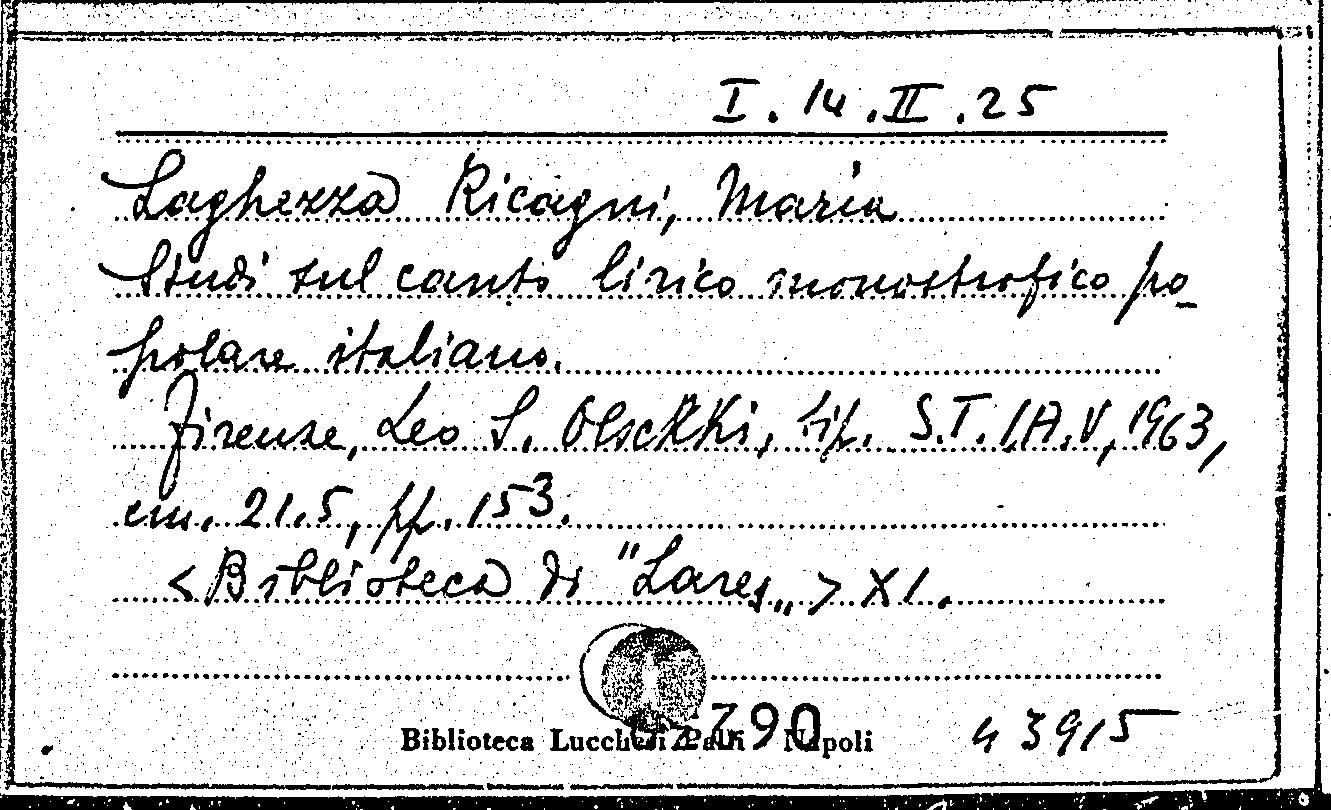 I. 14. II. 25
Laghezza Ricagni, Maria
Studi sul canto lirico monostrofico po-
polare italiano.
Firenze, Leo S. Olschki, tip. S.T.I.A.V, 1963,
cm. 21.5, pp. 153.
<Biblioteca di "Lares„> XI.
790
Biblioteca Lucchesi Palli Napoli
43915